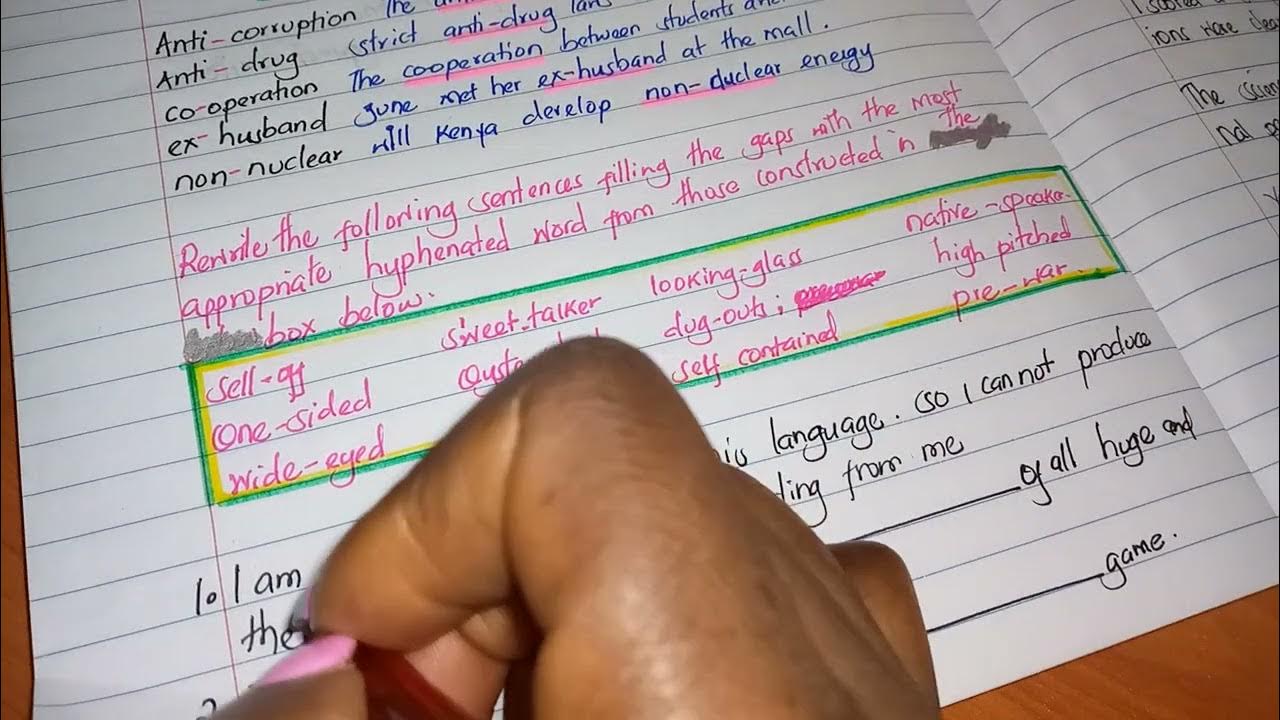 Anti-corruption The
Anti-drug (strict anti-drug
co-operation The cooperation between students
ex-husband June met her ex-husband at the mall.
non-nuclear will Kenya develop non-duclear energy
Rewrite the following sentences filling the gaps with the most
appropriate hyphenated word from those constructed in the
box below.
sell-off sweet-talker looking-glass native-speake-
one-sided dug-outs; high pitched
wide-eyed self contained pre-war.
1. I am is language. (so I cannot produce
the from me
of all huge and
game.
ions were
The